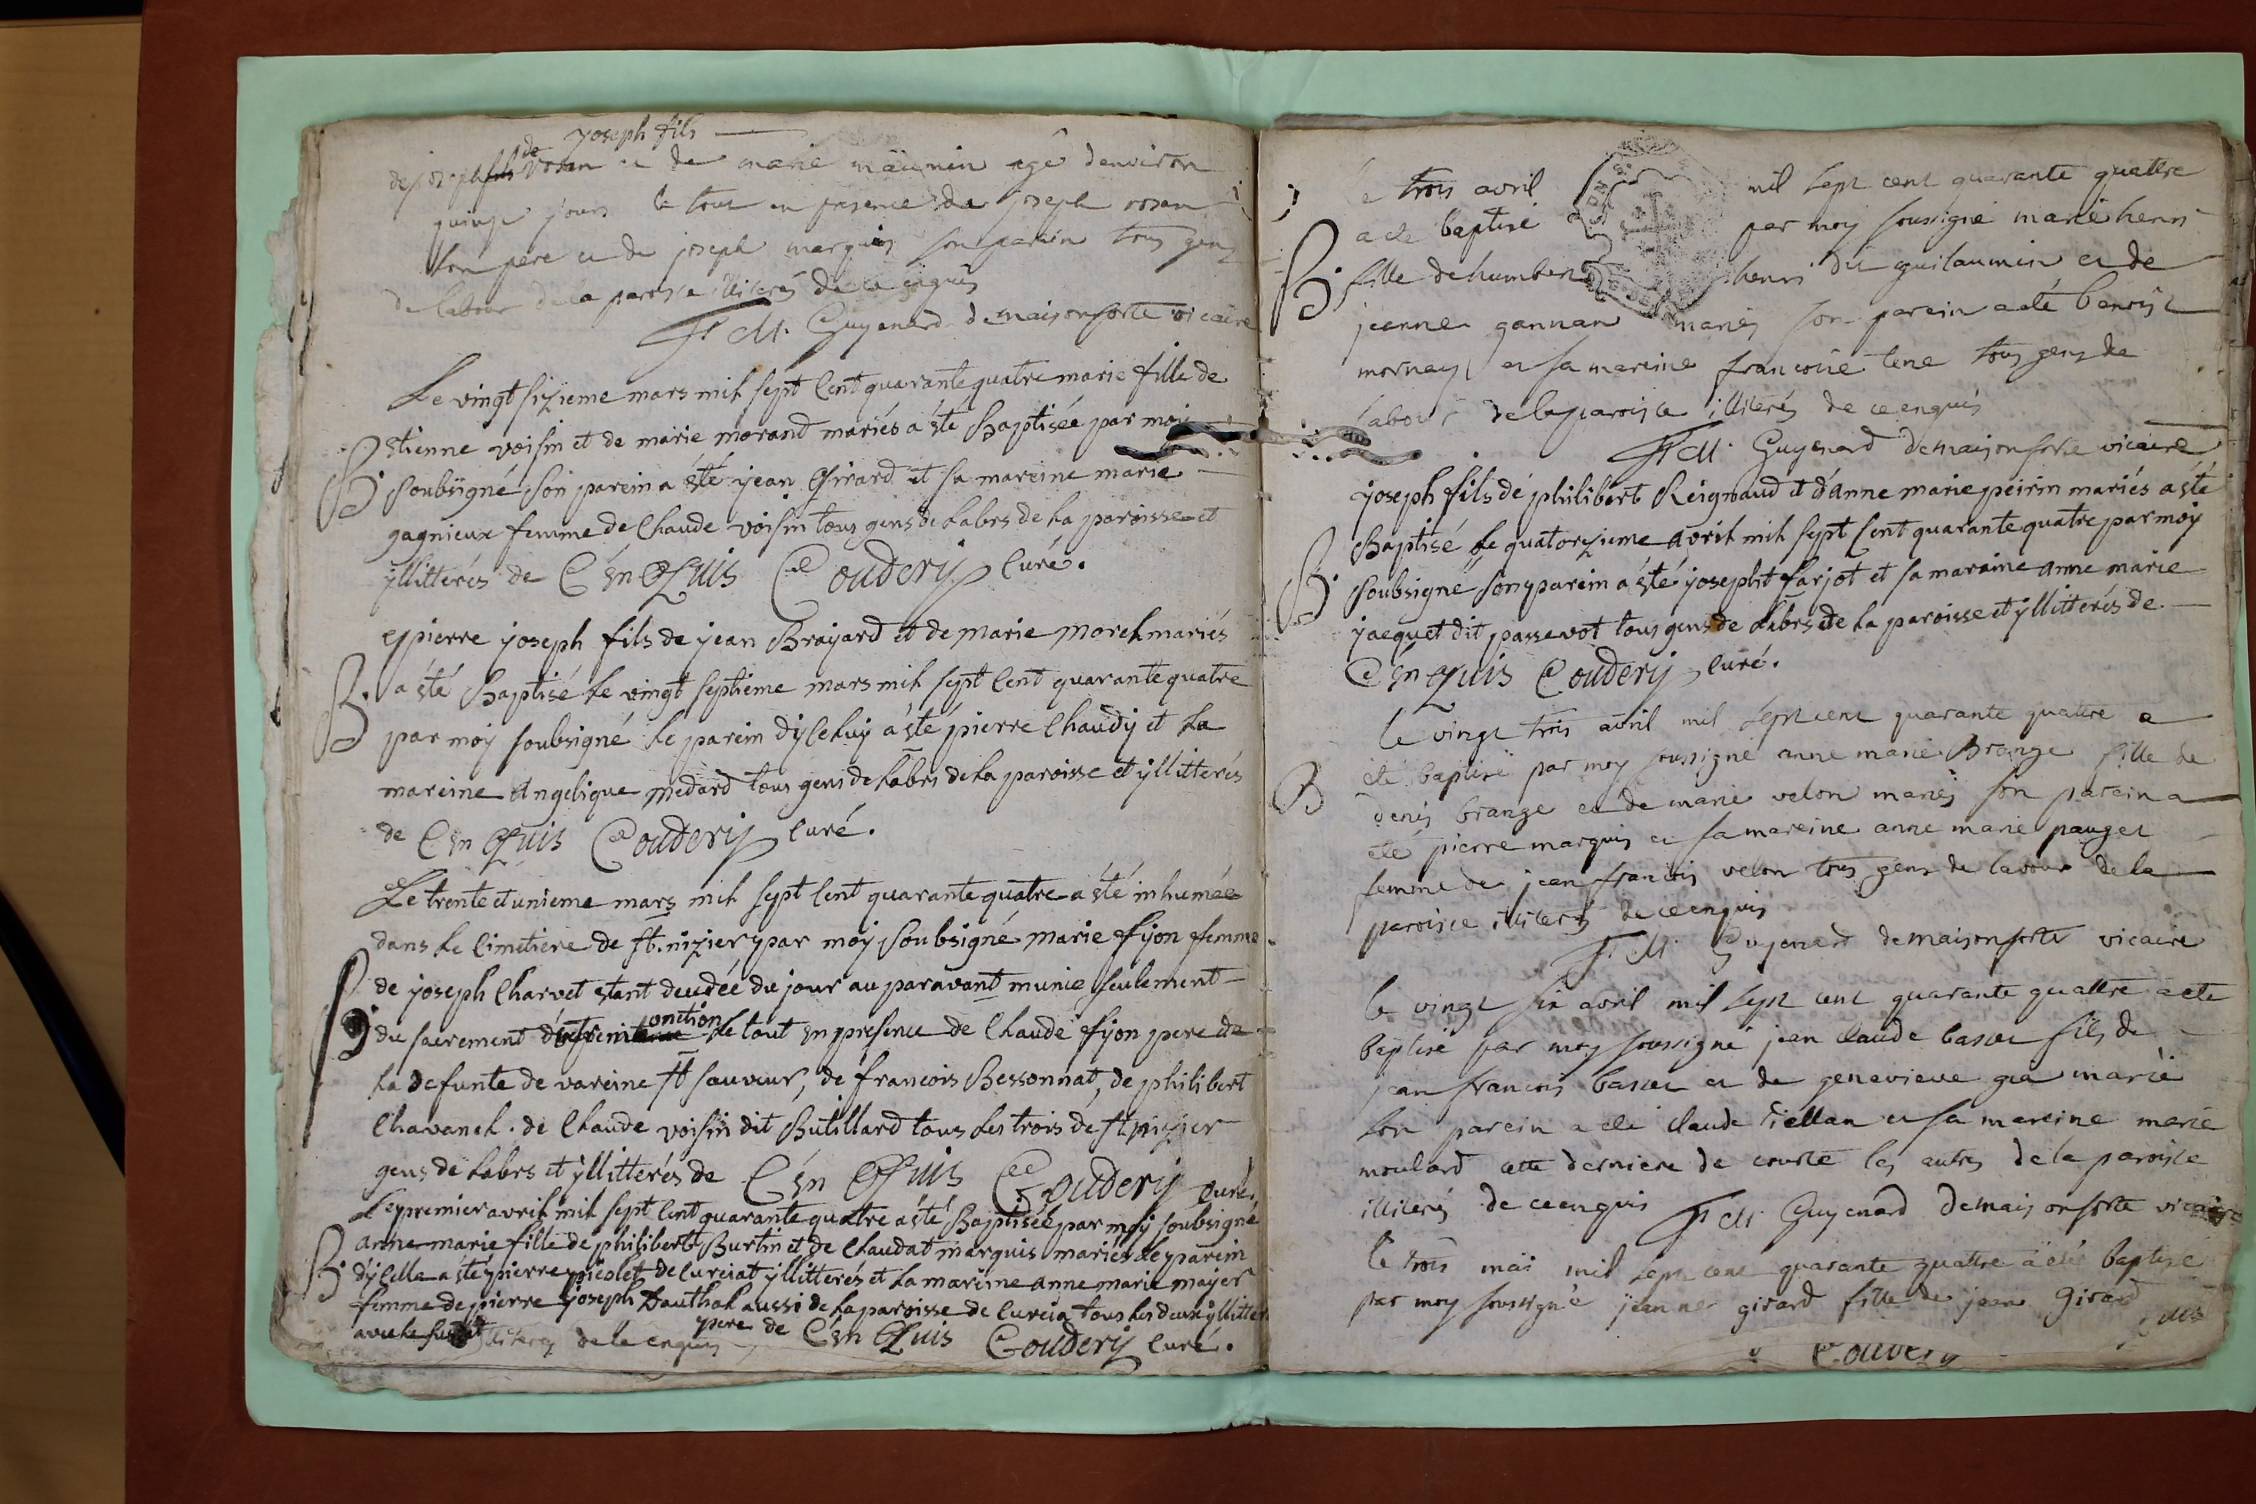 joseph fils
de joseph fils de rosan et de marie maümin agé denviron
quinze jours le tout en presence de joseph rosan
son pere et de joseph marquis son parein tous gens
de labour de la paroisse illiterés de ce enquis
Fr M. Guyenard demaisonforte vicaire
Le vingt sizieme mars mil sept Cent quarante quatre marie fille de
B. etienne voisin et de marie morand mariés a été Baptisée par moi
soubsigné son parein a été jean Girard et sa mareine marie
gagnieux femme de Claude voisin tous gens de Labrs de La paroisse et
yllitterés de Cen Quis Coudery Curé.
pierre joseph fils de jean Brayard et de marie morel mariés
B. a été Baptisé Le vingt septieme mars mil sept Cent quarante quatre
par moy soubsigné Le parein dyCeluy a été pierre Chaudy et La
mareine Angelique medard tous gens de Labrs de La paroisse et yllitterés
de Cen Quis Coudery Curé.
Le trente et unieme mars mil sept Cent quarante quatre a été inhumée
dans Le Cimetiere de st. nizier par moy soubsigné marie fijon femme
de joseph Charvet etant decedée du jour au paravant munie seulement
du sacrement d'extreme onction Le tout en presence de Claude fijon pere de
La defunte de vareine st sauveur, de francois Bessonnat, de philibert
Chavanel. de Claude voisin dit Butillard tous Les trois de st nizier
gens de Labrs et yllitterés de Cen Quis Coudery Curé.
Le premier avril mil sept Cent quarante quatre a été Baptisée par moy soubsigné
B. anne marie fille de philibert Burtin et de Claudat marquis mariés Le parein
dyCelle a été pierre nicolet de Curciat yllitterés et La mareine anne marie mayer
femme de pierre joseph Dauthal aussi de La paroisse de Curcia tous Les deux yllitter
avec le susdit pere de Cen Quis Coudery Curé.
illiterés de ce enquis
Le trois avril mil sept cent quarante quattre
a ete baptisé par moy soussigné marie henri
B. fille de humbert henri dit guilaumin et de
jeanne gannan mariés son parein a eté benoist
mornay et sa mareine francoise tene tous gens de
labour de la paroisse illiterés de ce enquis
Fr M. Guyenard demaisonforte vicaire
joseph fils de philibert Reignaud et d'anne marie peirin mariés a été
B. Baptisé Le quatorzieme avril mil sept Cent quarante quatre par moy
soubsigné son parein a été joseph farjot et sa maraine anne marie
jacquet dit passevot tous gens de Labrs de La paroisse et yllitterés de
Cen Quis Coudery Curé.
le vingt trois avril mil sept cent quarante quattre a
B eté baptisé par moy soussigné anne marie Brange fille de
denis brange et de marie velon mariés son parein a
eté pierre marquis et sa mareine anne marie pauget
femme de jean francois velon tous gens de labour de la
paroisse illiterés de ce enquis
Fr M. Guyenard demaisonforte vicaire
le vingt six avril mil sept cent quarante quattre a ete
baptisé par moy soussigné jean claude basset fils de
jean francois basset et de genevieve gra marié
son parein a eté claude tiellan et sa mareine marie
moulard cette derniere de courte les autres de la paroisse
illiterés de ce enquis Fr M. Guyenard demaisonforte vicaire
le trois mai mil sept cent quarante quattre a eté baptisé
par moy soussigné jeanne girard fille de jean Girard
Coudery